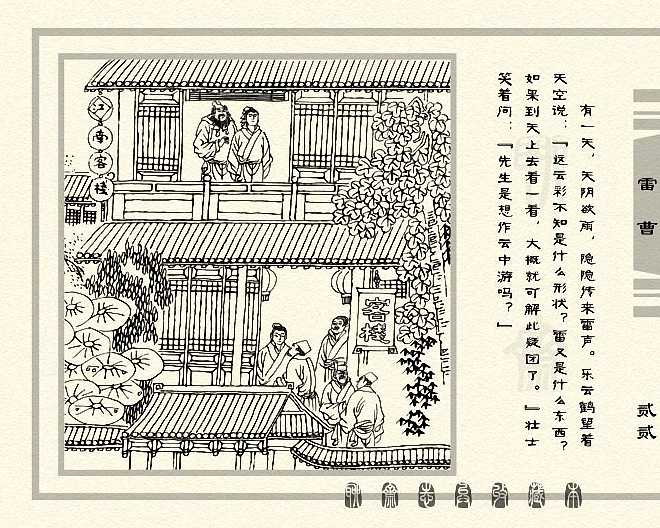 有一天，天阴欲雨，隐隐传来雷声。乐云鹤望着
天空说：『这云彩不知是什么形状？雷又是什么东西？
如果到天上去看一看，大概就可解此疑团了。』壮士
笑着问：『先生是想作云中游吗？』
雷曹
贰贰
江南客栈
客栈
聊斋志异收藏本